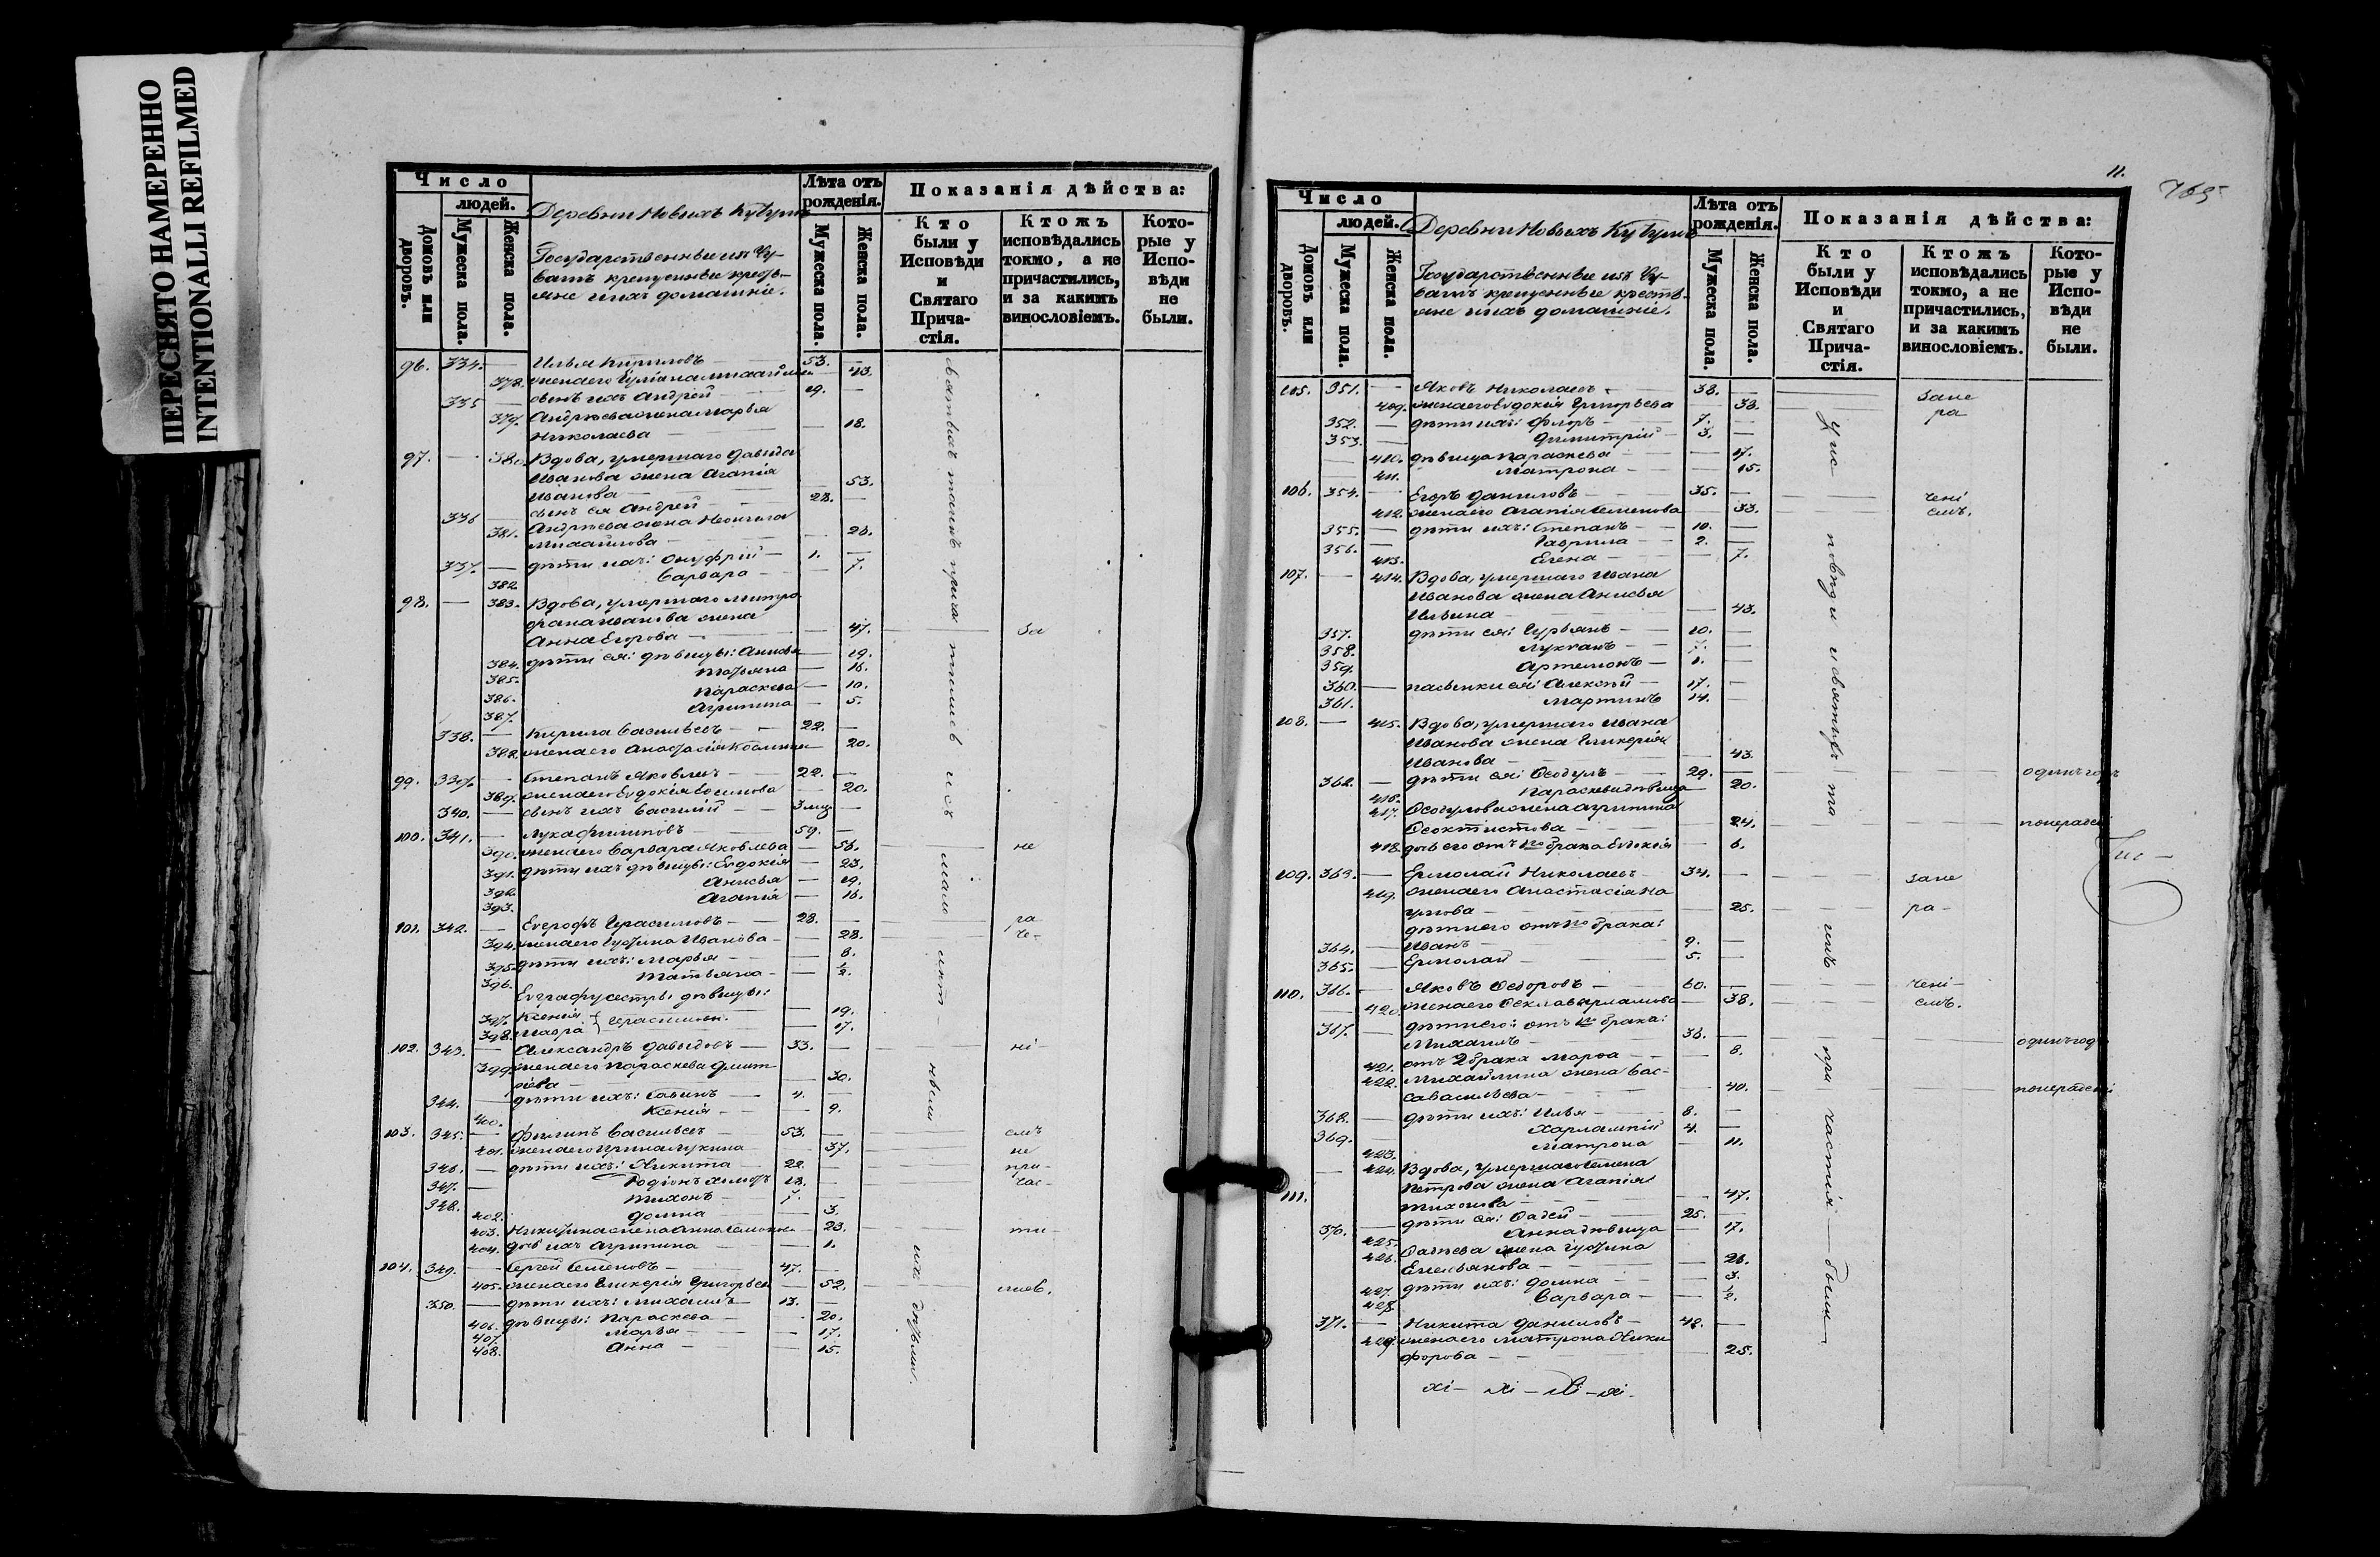 ПЕРЕСНЯТО НАМЕРЕННО
INTENTIONALLI REFILMED
Число
людей.
Домовъ или дворовъ.
Мужеска пола.
Женска пола.
Деревни Новыхъ
Государственные изъ Чу-
вашъ крещенные кресть-
яне и ихъ домашніе.
Лѣта отъ рожденія.
Мужеска пола.
Женска пола.
Показанія дѣйства:
Кто были у Исповѣди и Святаго Прича- стія.
Ктожъ исповѣдались токмо, а не причастились, и за какимъ винословіемъ.
Кото- рые у Испо- вѣди не были.
96. 334. — Илья Кириловъ — 53. —
378. жена его — 43.
335 — сынъ ихъ Андрей — 19. —
379. Андреева жена Марья
Николаева — — 18.
97. — 380. Вдова, умершаго Давыда
Иванова жена Агапія
Иванова — 53.
336 — сынъ ея Андрей — 28. —
381. Андреева жена
Михайлова — — 26.
337. — дѣти ихъ: Онуфрій — 1. —
382. Варвара — — 7.
98. — 383. Вдова, умершаго Митро
фана Иванова жена
Анна Егорова — — 47. — За
384. дѣти ея: дѣвицы: Анисья — 19.
385. Татьяна — 16.
386. Параскева — 10.
387. Агрипина — 5.
338. — Кирила Васильевъ — 22. —
388. жена его Анастасія — 20.
99. 339. — Степанъ Яковлевъ — 22. —
389. жена его Евдокія — 20.
340. — сынъ ихъ Василій — 3 мѣс —
100. 341. — Лука Филиповъ — 59. —
390. жена его Варвара Яковлева — 56. — не
391. дѣти ихъ дѣвицы: Евдокія — 23.
392. Анисья — 19.
393. Агапія — 16.
101. 342. — Герасимовъ — 28. — ра
394. жена его Иванова — 28. че-
395. дѣти ихъ: Марья — 8.
396. Татьяна — ½.
сестры дѣвицы:
397. Ксенія 19.
398. Мавра } Герасимовы. 17.
102. 343. — Александръ Давыдовъ — 33. — ні
399. жена его Параскева Дмит
ріева — — 30.
344. — дѣти ихъ: Савинъ — 4. —
400. Ксенія — — 9.
103. 345. — Филипъ Васильевъ — 53. — емъ
401. жена его Ирина Лукина — 37. — не
346. — дѣти ихъ: Никита — 22. — при-
347. — Родіонъ 18. — час-
348. Тихонъ — 7. —
402. Домна — 3.
403. Никитина жена Анна — 23. — ти-
404. дочь ихъ Агрипина — 1.
104. 349. — Сергей Семеновъ — 47. —
405. жена его Гликерія Григорьева — 52. — лись.
350. — дѣти ихъ: Михаилъ — 13. —
406. дѣвицы: Параскева — 20.
407. Марья — 17.
408. Анна — 15.
11.
765
Число
людей.
Домовъ или дворовъ.
Мужеска пола.
Женска пола.
Деревни Новыхъ
Государственные изъ Чу-
вашъ крещенные кресть-
яне и ихъ домашніе.
Лѣта отъ рожденія.
Мужеска пола.
Женска пола.
Показанія дѣйства:
Кто были у Исповѣди и Святаго Прича- стія.
Ктожъ исповѣдались токмо, а не причастились, и за какимъ винословіемъ.
Кото- рые у Испо- вѣди не были.
105. 351. — Яковъ Николаевъ — 38. — Зане
409. жена его Евдокія Григорьева — 38. ра
352. — дѣти ихъ: Флоръ — 7. —
353. — Димитрій — 3. —
410. дѣвица Параскева — 17.
411. Матрона — 15.
106. 354. — Егоръ Даниловъ — 35. — чені
412. жена его Агапія Семенова — 33. емъ.
355. — дѣти ихъ: Степанъ — 10. —
356. — Гаврила — 2. —
413. Елена — 7.
107. — 414. Вдова, умершаго Ивана
Иванова жена Анисья
Ильина — 43.
357. дѣти ея: Гурьянъ — 10. —
358. Лукьянъ — 7. —
359. Артемонъ — 1. —
360. — пасынки ея: Алексѣй — 17. —
361. Мартинъ 14.
108. — 415. Вдова, умершаго Ивана
Иванова жена Гликерія
Иванова — 43.
362. — дѣти ея: Ѳеодулъ — 29. — одинъ годъ
416. Параскева дѣвица 20.
417. Ѳеодулова жена Агрипина
Ѳеоктистова — 24. — по нерадѣн
418. дочь его отъ 1го брака — 6.
109. 363. — Ермолай Николаевъ — 34. — Зане
419. жена его Анастасія На
умова — 25. — ра-
дѣти его отъ 1го брака:
364. — Иванъ — 9. —
365. — Ермолай — 5. —
110. 366. — Яковъ Ѳедоровъ — 60. — чені-
420. жена его Ѳекла Варламова — 38. емъ.
367. дѣти его: отъ 1го брака:
Михаилъ — 36. — одинъ годъ
421. отъ 2 брака Марѳа — 8.
422. Михайлина жена Вас-
са Васильева — 40. — по нерадѣні
368. — дѣти ихъ: Илья — 8. —
369. — Харлампій 4. —
423. Матрона — 11.
111. 424. Вдова, умершаго Семена
Петрова жена Агапія
Тихонова — 47.
370. — дѣти ея: Ѳадей — 25. —
425. Анна дѣвица — 17.
426. Ѳадеева жена
Емельянова — 26.
427. дѣти ихъ: Домна — 3.
428. Варвара — ½.
371. — Никита Даниловъ — 48. —
429. жена его Матрона Ники
форова — 25.